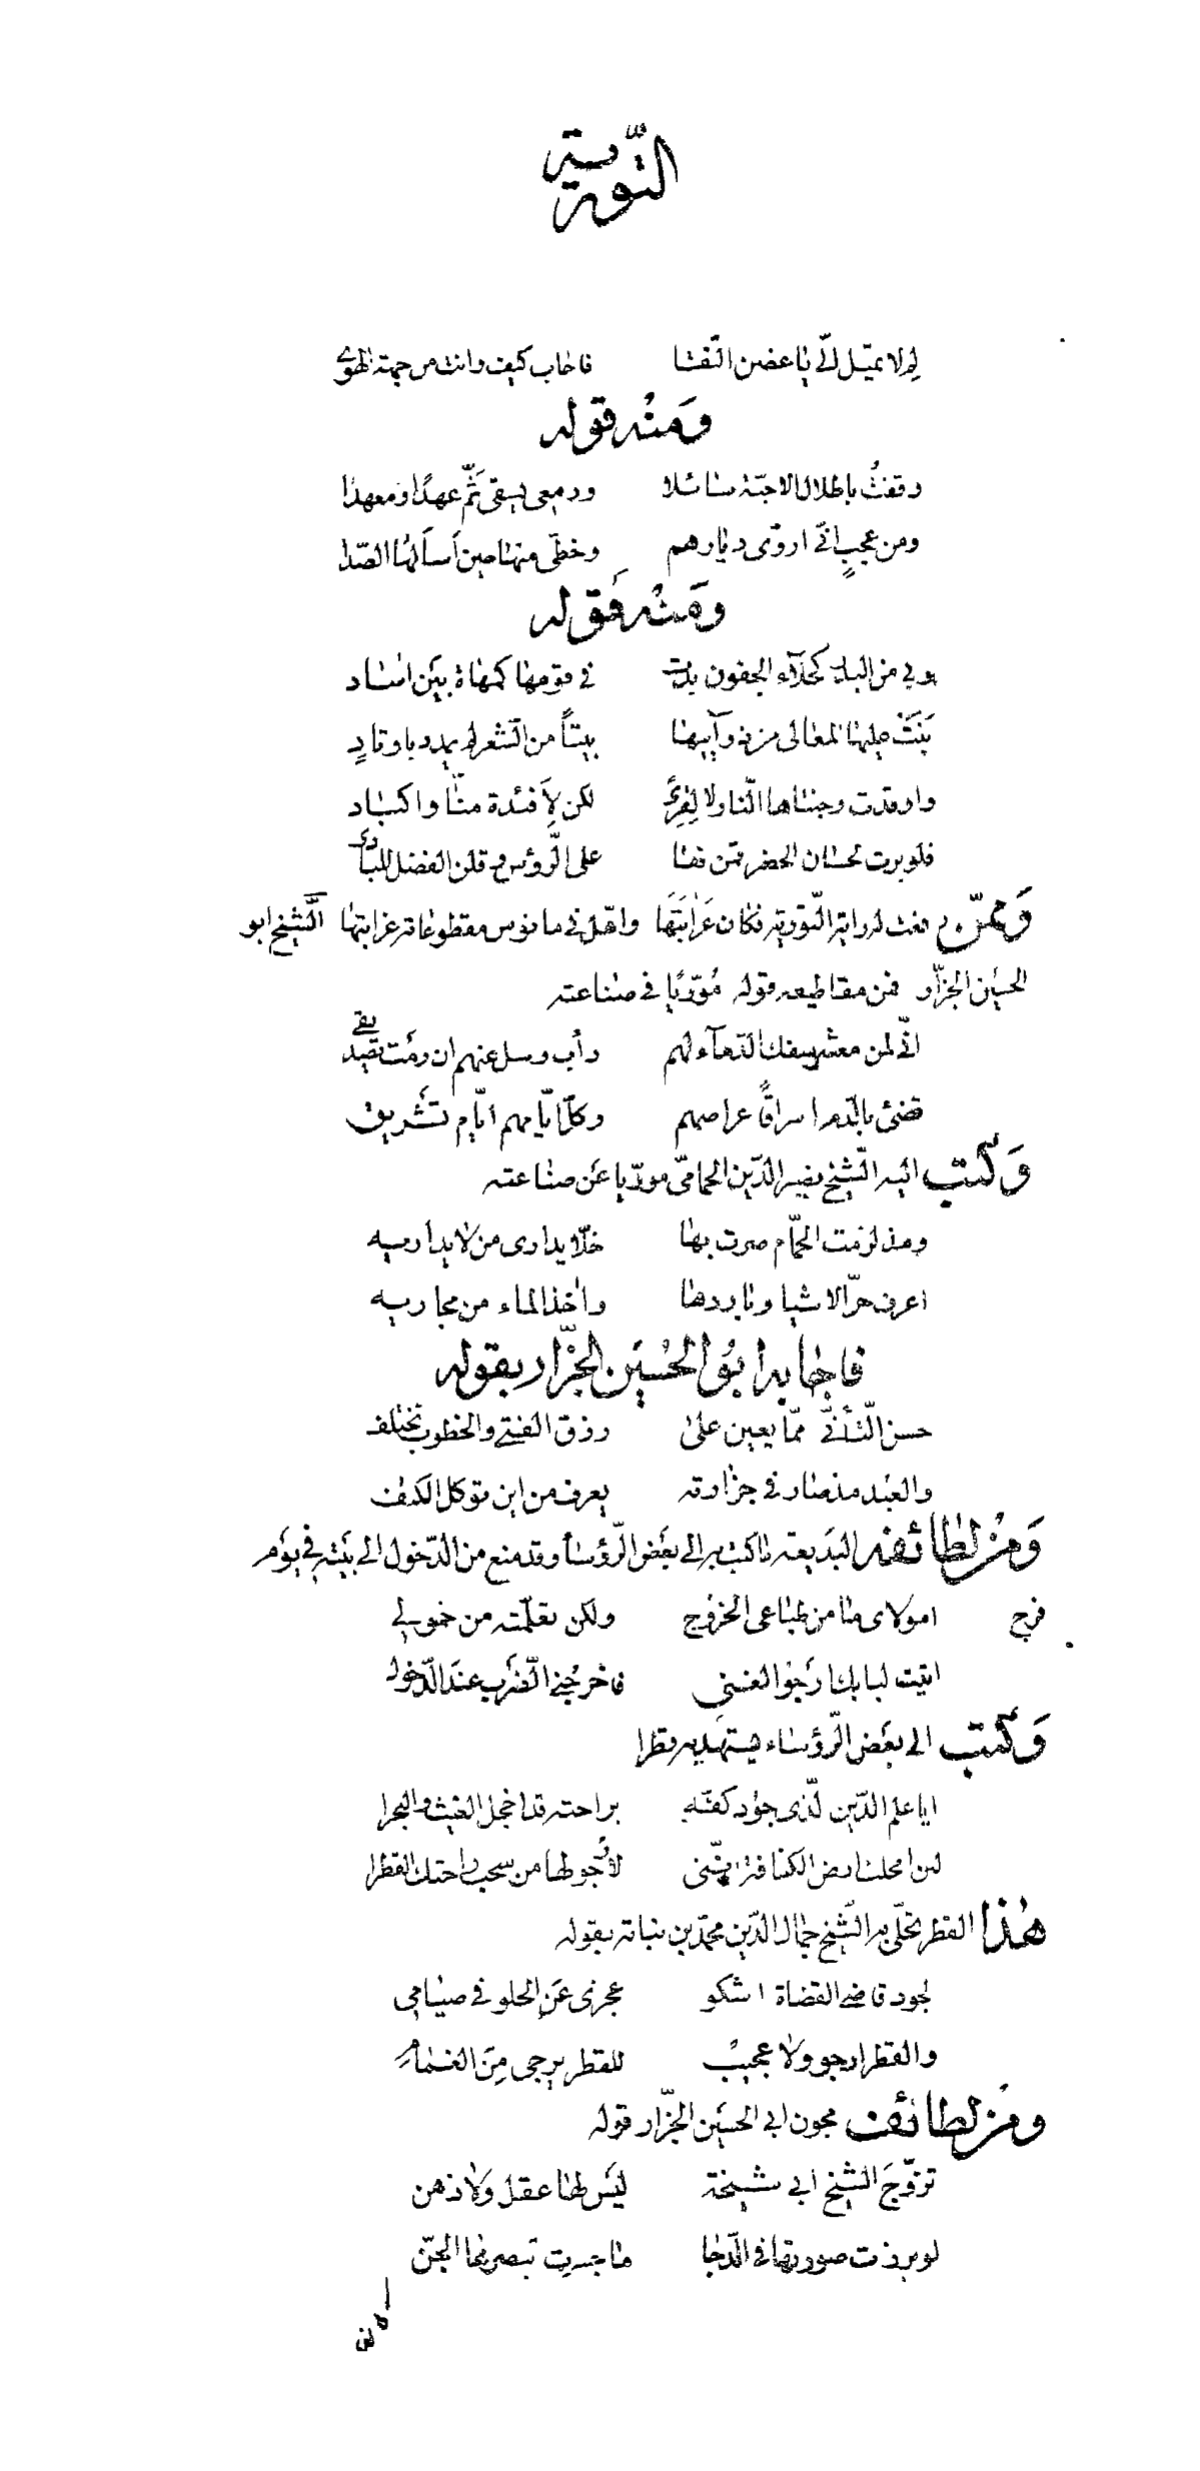 التّورية
لِم لا تميّل لي يا غصن النّقا فاجاب كيف وانت من جهة الهوى
وَمنْه قوله
وقفتُ باطلال الاحبّة سائلا ودمعى يسقى ثَمّ عهدًا ومعهدا
ومن عجبٍ انّى اروّى ديارهم وحظّى منها حين أسألها الصّدا
ومنْه قوله
وبي من البدو كحلآء الجفون بدت في قومها كمهاة بين اساد
بَنَتْ عليها المعالى من وآبيها بيتاً من الشعر لم يمدد باوتادٍ
واوقدت وجنتاها النّار لا لِقِرىً لكن لأفئدة منّا واكباد
فلو بدت لحسان الحضر قمن لها على الرّؤس وقلن الفضل للبادى
وَممّن رفعت له راية التّورية فكان عَرابَتَها واهّل في مانوس مقطوعاته غرابتها الشّيخ ابو
الحسين الجزّار فمن مقاطيعه قوله مُورّيًا في صناعته
انّى لمن معشر سفك الدّماء لهم دأب وسل عنهم ان رمت تصديقى
تضئ بالدّم اشراقًا عراصهم وكلّ ايّامهم ايّام تشريق
وَكتب اليه الشّيخ نصير الدّين الحمامىّ مورّيا عن صناعته
ومذ لزمت الحمّام صرت بها خلّا يدارى من لا يداريه
اعرف حرّ الاشيا وباردها واخذ الماء من مجاريه
فاجابه ابُو الحسَين الجزّار بقوله
حسن التّأنّى ممّا يعين على رزق الفتى والخطوب تختلف
والعبد مذ صار في جزارته يعرف من اين توكل الكتف
وَمن لطائفه البَديعة ما كتب به الى بعَض الرّؤسأ وقد منع من الدّخول الى بيته في يوم
فرح امولاى ما من طباعى الخروج ولكن تعلّمته من خمولى
اتيت لبابك ارجو الغنى فاخرجنى الضّرب عند الدّخول
وَكتب الى بعَض الرّؤساء يستهديه قطرا
ايا علم الدّين الّذى جود كفّه براحته قد اخجل الغيث والبحرا
لئن امحلت ارض الكنافة انّنى لأرجو لها من سحب راحتك القطرا
هٰذا القطر تحلّى به الشّيخ جمال الدّين محمّد بن نباتة بقوله
لجود قاضى القضاة اشكو عجزى عَن الحلو في صيامى
والقطر ارجو ولا عجيبٌ للقطر يرجى مِنَ الغمام
ومن لطائف مجون ابى الحسَين الجزّار قوله
تزوّجَ الشيخ ابى شيخة ليَس لها عقل وَلا ذهن
لو برزت صورتها في الدّجا ما جسرت تبصرها الجنّ